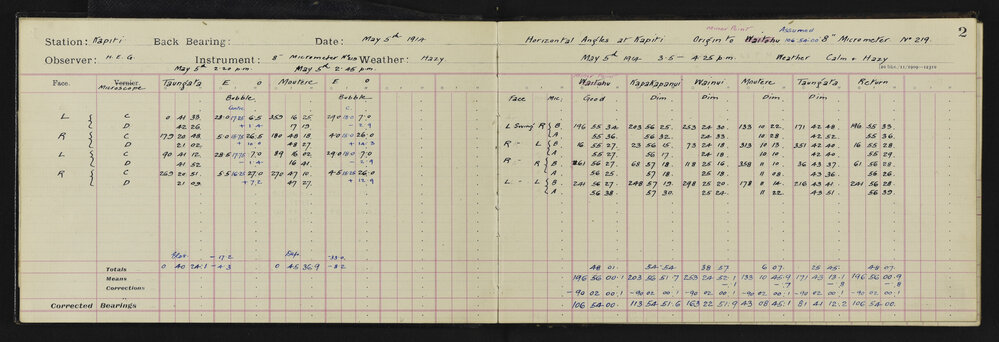 Station: Kapiti Back Bearing: Date: May 5th 1914
Observer: H.E.G. Instrument: 8" Micrometer No 219 Weather: Hazy
May 5th 2.20 p.m. May 5th 2.45 p.m.
Face. Vernier. Microscope Taungata E O Moutere E O
Bubble Bubble
L C 0 41 33. 28.0 17.25 6.5 359 16 25. 29.0 18.0 7.0
D 42 26. 17 19.
R C 179 20 48. 180 48 18. 26.0
D 21 02 48 27.
L C 90 41 12. 28.5 17.75 7.0 89 16 02 29.0 18.0 7.0
D 41 52 16 41.
R C 269 20 51. 5.5 16.25 27.0 270 47 10.
D 21 09. + 7.2 47 27.
- 17.2
Totals 0 40 24.1 - 4.3 0 45 36.9 - 8.2
Means
Corrections
Corrected Bearings
2
Minor Point Assumed
Horizontal Angles at Kapiti Origin to Waitohu 106.54.00 8" Micrometer No 219.
May 5th 1914 3.5 - 4.25 p.m. Weather Calm & Hazy
Face Mic: Waitohu Kapakapanui Wainui Moutere Taungata Return
Good Dim. Dim. Dim. Dim.
L Swing R B 196 55 34. 203 56 25. 253 24 30. 133 10 22. 171 42 48. 196 55 33.
A 55 36. 56 32. 24 33. 10 28. 42 52. 55 36.
R " L B 16 55 27. 23 56 15. 73 24 18. 313 10 13. 351 42 40. 16 55 28.
A 55 27. 56 17. 24 18. 10 10. 42 40. 55 29.
R " R B 61 56 27. 68 57 18. 118 25 16. 358 11 10. 36 43 37. 61 56 28.
A 56 25. 57 18. 25 18. 11 08. 43 36. 56 26.
L " L B 241 56 27. 248 57 19. 298 25 20. 178 11 14. 216 43 41. 241 56 28.
A 56 38. 57 30. 25 24. 11 22. 43 51. 56 39.
48 01. 54 54. 38 57. 6 07. 25 45. 48 07.
196 56 00.1 203 56 51.7 253 24 52.1 133 10 45.9 171 43 13.1 196 56 00.9
- .1 - .7 - .8 - .8
- 90 02 00.1 - 90 02 00.1 - 90 02 00.1 - 90 02 00.1 - 90 02 00.1 - 90 02 00.1
106 54 00. 113 54 51.6 163 22 51.9 43 08 45.1 81 41 12.2 106 54 00.